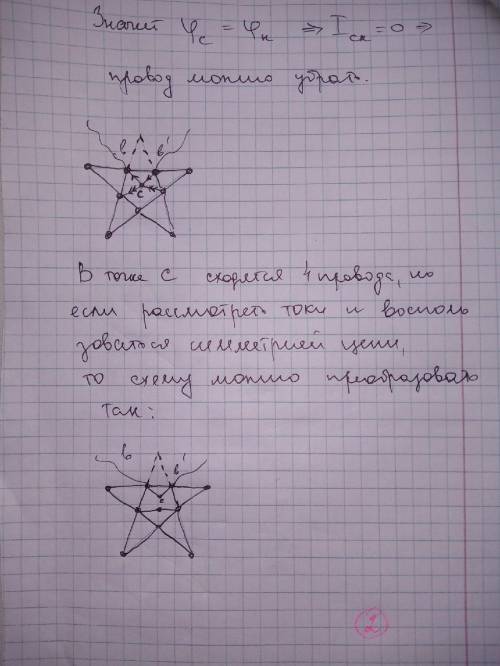 Значит φ_c = φ_к ⇒ I_ск = 0 ⇒
провод можно убрать.
в в'
с
В точке С сходятся 4 провода, но
если рассмотреть токи и восполь
зоваться симметрией цепи,
то схему можно преобразовать
так:
в в'
с
2